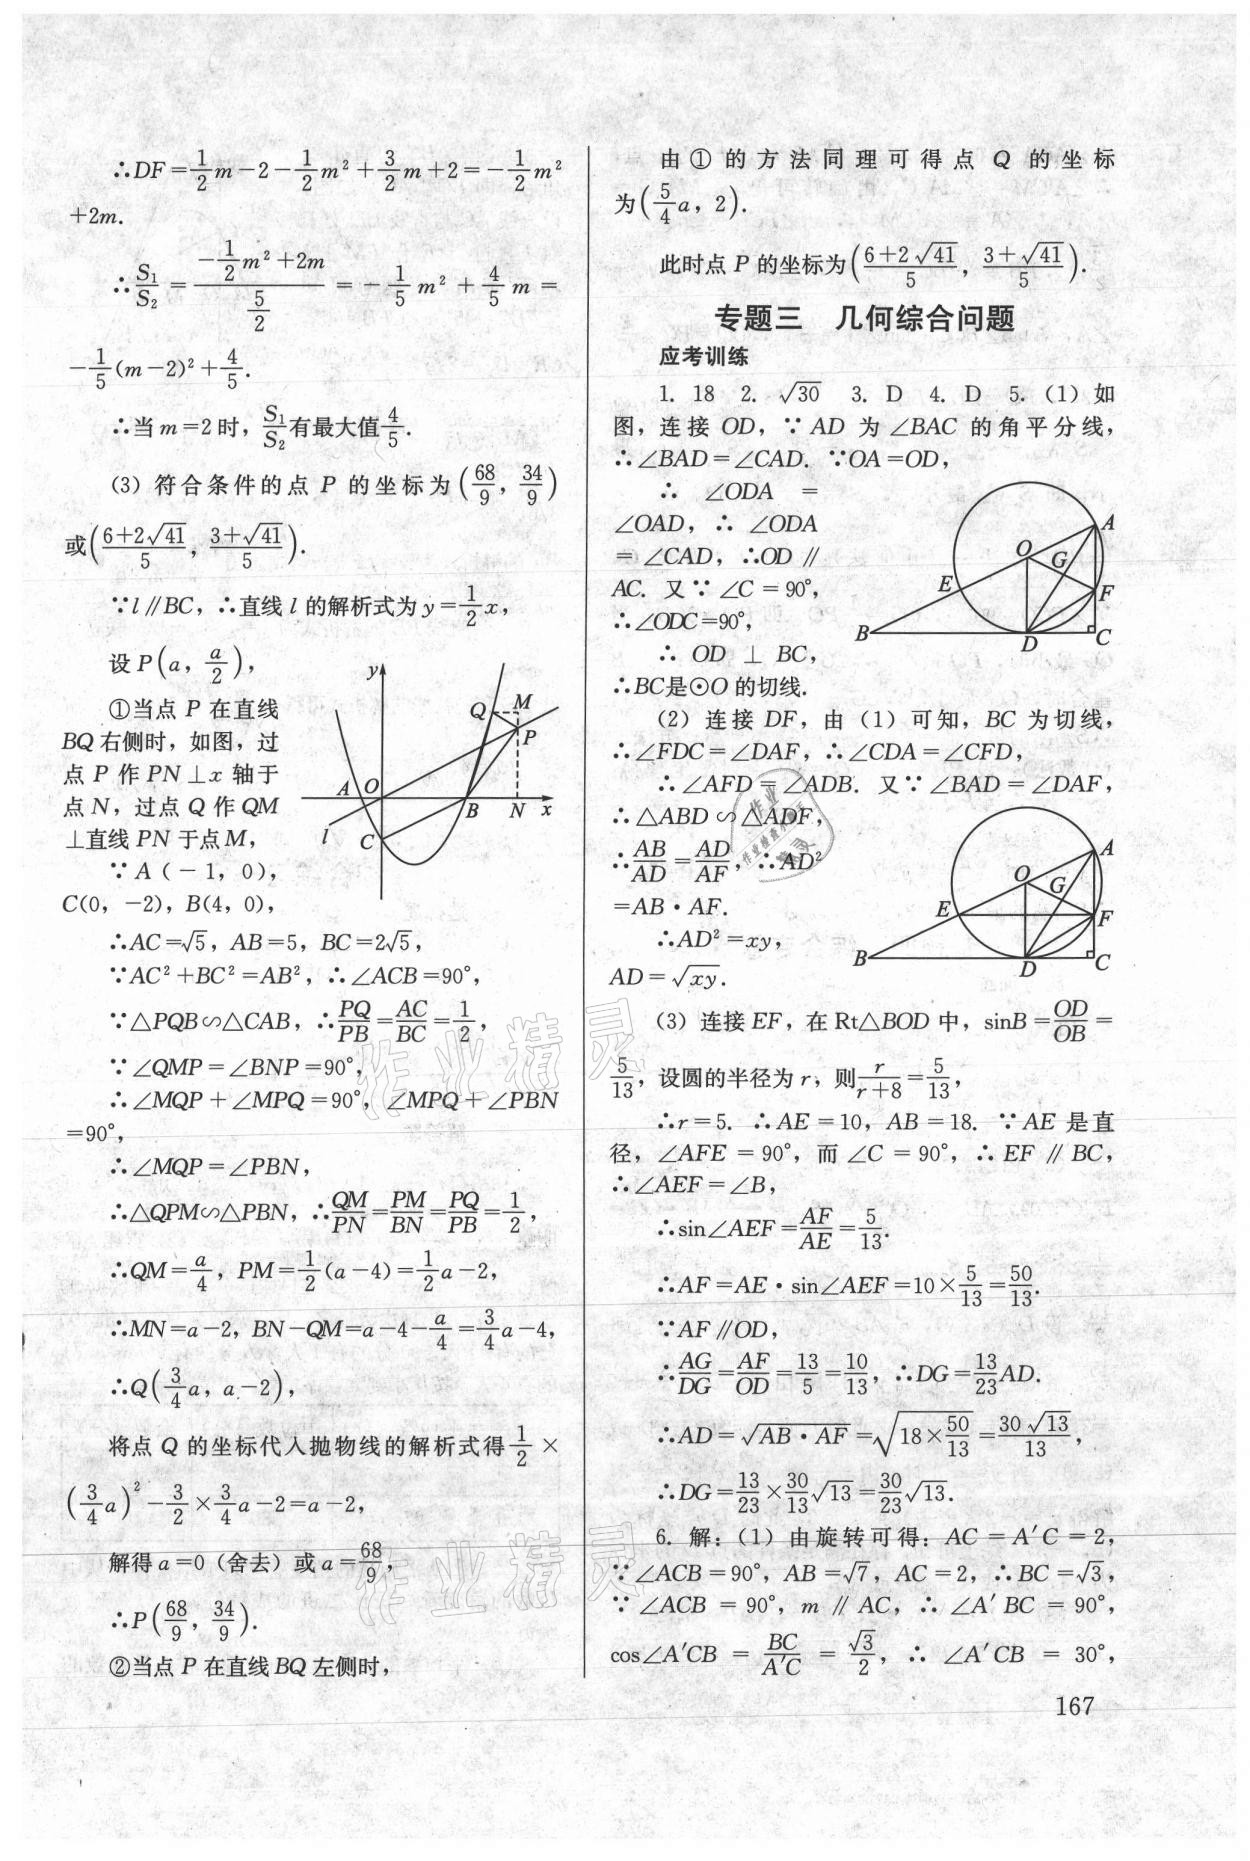 ∴DF=1/2m-2-1/2m²+3/2m+2=-1/2m²
+2m.
∴S₁/S₂=(-1/2m²+2m)/(5/2)=-1/5m²+4/5m=
-1/5(m-2)²+4/5.
∴当m=2时，S₁/S₂有最大值4/5.
(3) 符合条件的点P的坐标为(68/9，34/9)
或((6+2√41)/5，(3+√41)/5).
∵l∥BC，∴直线l的解析式为y=1/2x，
设P(a，a/2)，
①当点P在直线
BQ右侧时，如图，过
点P作PN⊥x轴于
点N，过点Q作QM
⊥直线PN于点M，
∵A(-1，0)，
C(0，-2)，B(4，0)，
y Q M P A O B N x l C
∴AC=√5，AB=5，BC=2√5，
∵AC²+BC²=AB²，∴∠ACB=90°，
∵△PQB∽△CAB，∴PQ/PB=AC/BC=1/2，
∵∠QMP=∠BNP=90°，
∴∠MQP+∠MPQ=90°，∠MPQ+∠PBN
=90°，
∴∠MQP=∠PBN，
∴△QPM∽△PBN，∴QM/PN=PM/BN=PQ/PB=1/2，
∴QM=a/4，PM=1/2(a-4)=1/2a-2，
∴MN=a-2，BN-QM=a-4-a/4=3/4a-4，
∴Q(3/4a，a-2)，
将点Q的坐标代入抛物线的解析式得1/2×
(3/4a)²-3/2×3/4a-2=a-2，
解得a=0（舍去）或a=68/9，
∴P(68/9，34/9).
②当点P在直线BQ左侧时，
由①的方法同理可得点Q的坐标
为(5/4a，2).
此时点P的坐标为((6+2√41)/5，(3+√41)/5).
专题三 几何综合问题
应考训练
1. 18 2. √30 3. D 4. D 5.（1）如
图，连接OD，∵AD为∠BAC的角平分线，
∴∠BAD=∠CAD. ∵OA=OD，
∴ ∠ODA =
∠OAD，∴∠ODA
=∠CAD，∴OD∥
AC. 又∵∠C=90°，
∴∠ODC=90°，
∴ OD ⊥ BC，
∴BC是⊙O的切线.
A O G E F B D C
(2) 连接DF，由（1）可知，BC为切线，
∴∠FDC=∠DAF，∴∠CDA=∠CFD，
∴∠AFD=∠ADB. 又∵∠BAD=∠DAF，
∴△ABD∽△ADF，
∴AB/AD=AD/AF，∴AD²
=AB·AF.
∴AD²=xy，
AD=√xy.
A O G E F B D C
(3) 连接EF，在Rt△BOD中，sinB=OD/OB=
5/13，设圆的半径为r，则r/(r+8)=5/13，
∴r=5. ∴AE=10，AB=18. ∵AE是直
径，∠AFE=90°，而∠C=90°，∴EF∥BC，
∴∠AEF=∠B，
∴sin∠AEF=AF/AE=5/13.
∴AF=AE·sin∠AEF=10×5/13=50/13.
∵AF∥OD，
∴AG/DG=AF/OD=13/5=10/13，∴DG=13/23AD.
∴AD=√(AB·AF)=√(18×50/13)=30√13/13，
∴DG=13/23×30/13√13=30/23√13.
6. 解：(1) 由旋转可得：AC=A′C=2，
∵∠ACB=90°，AB=√7，AC=2，∴BC=√3，
∵∠ACB=90°，m∥AC，∴∠A′BC=90°，
cos∠A′CB=BC/A′C=√3/2，∴∠A′CB=30°，
167
作业精灵
作业精灵